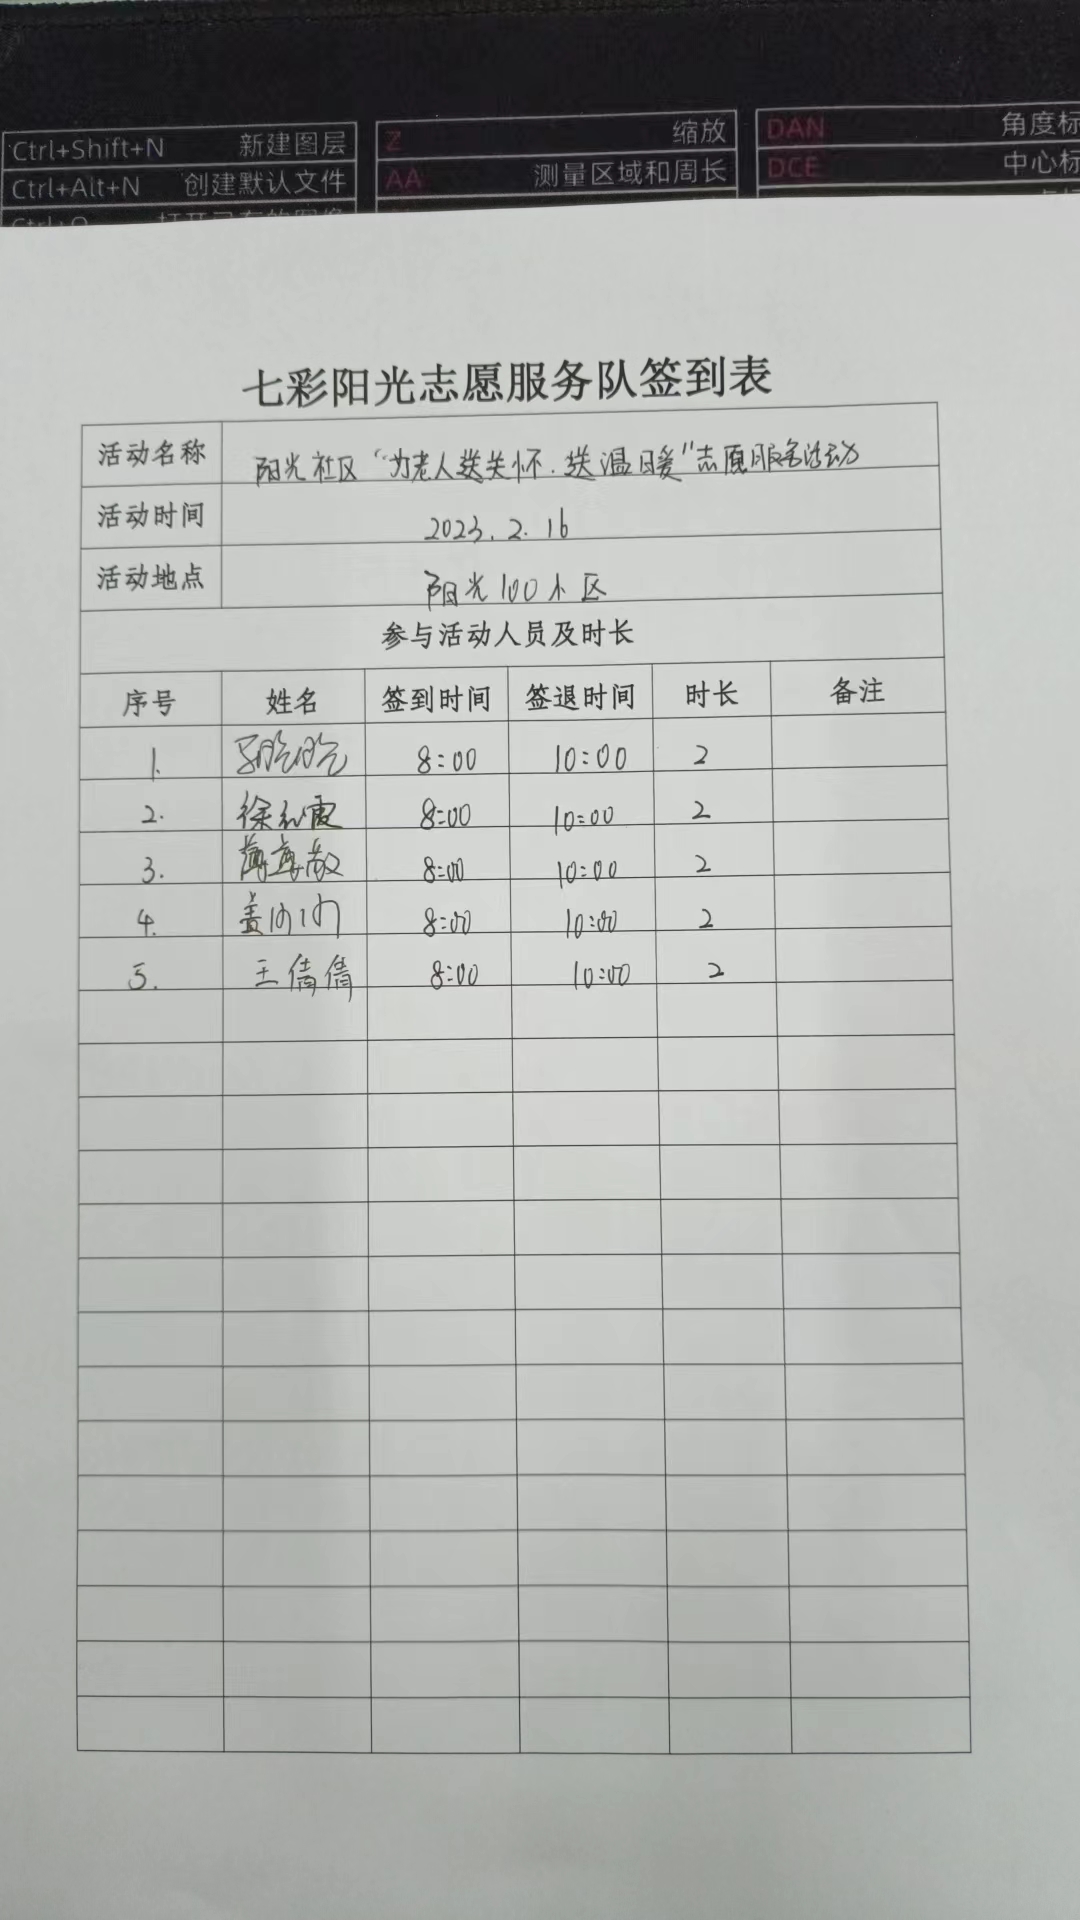 Ctrl+Shift+N 新建图层 Z 缩放 DAN 角度标
Ctrl+Alt+N 创建默认文件 AA 测量区域和周长 DCE 中心标
七彩阳光志愿服务队签到表
活动名称 阳光社区“为老人送关怀.送温暖”志愿服务活动
活动时间 2023.2.16
活动地点 阳光100小区
参与活动人员及时长
序号 姓名 签到时间 签退时间 时长 备注
1. 8:00 10:00 2
2. 徐红霞 8:00 10:00 2
3. 8:00 10:00 2
4. 8:00 10:00 2
5. 王倩倩 8:00 10:00 2